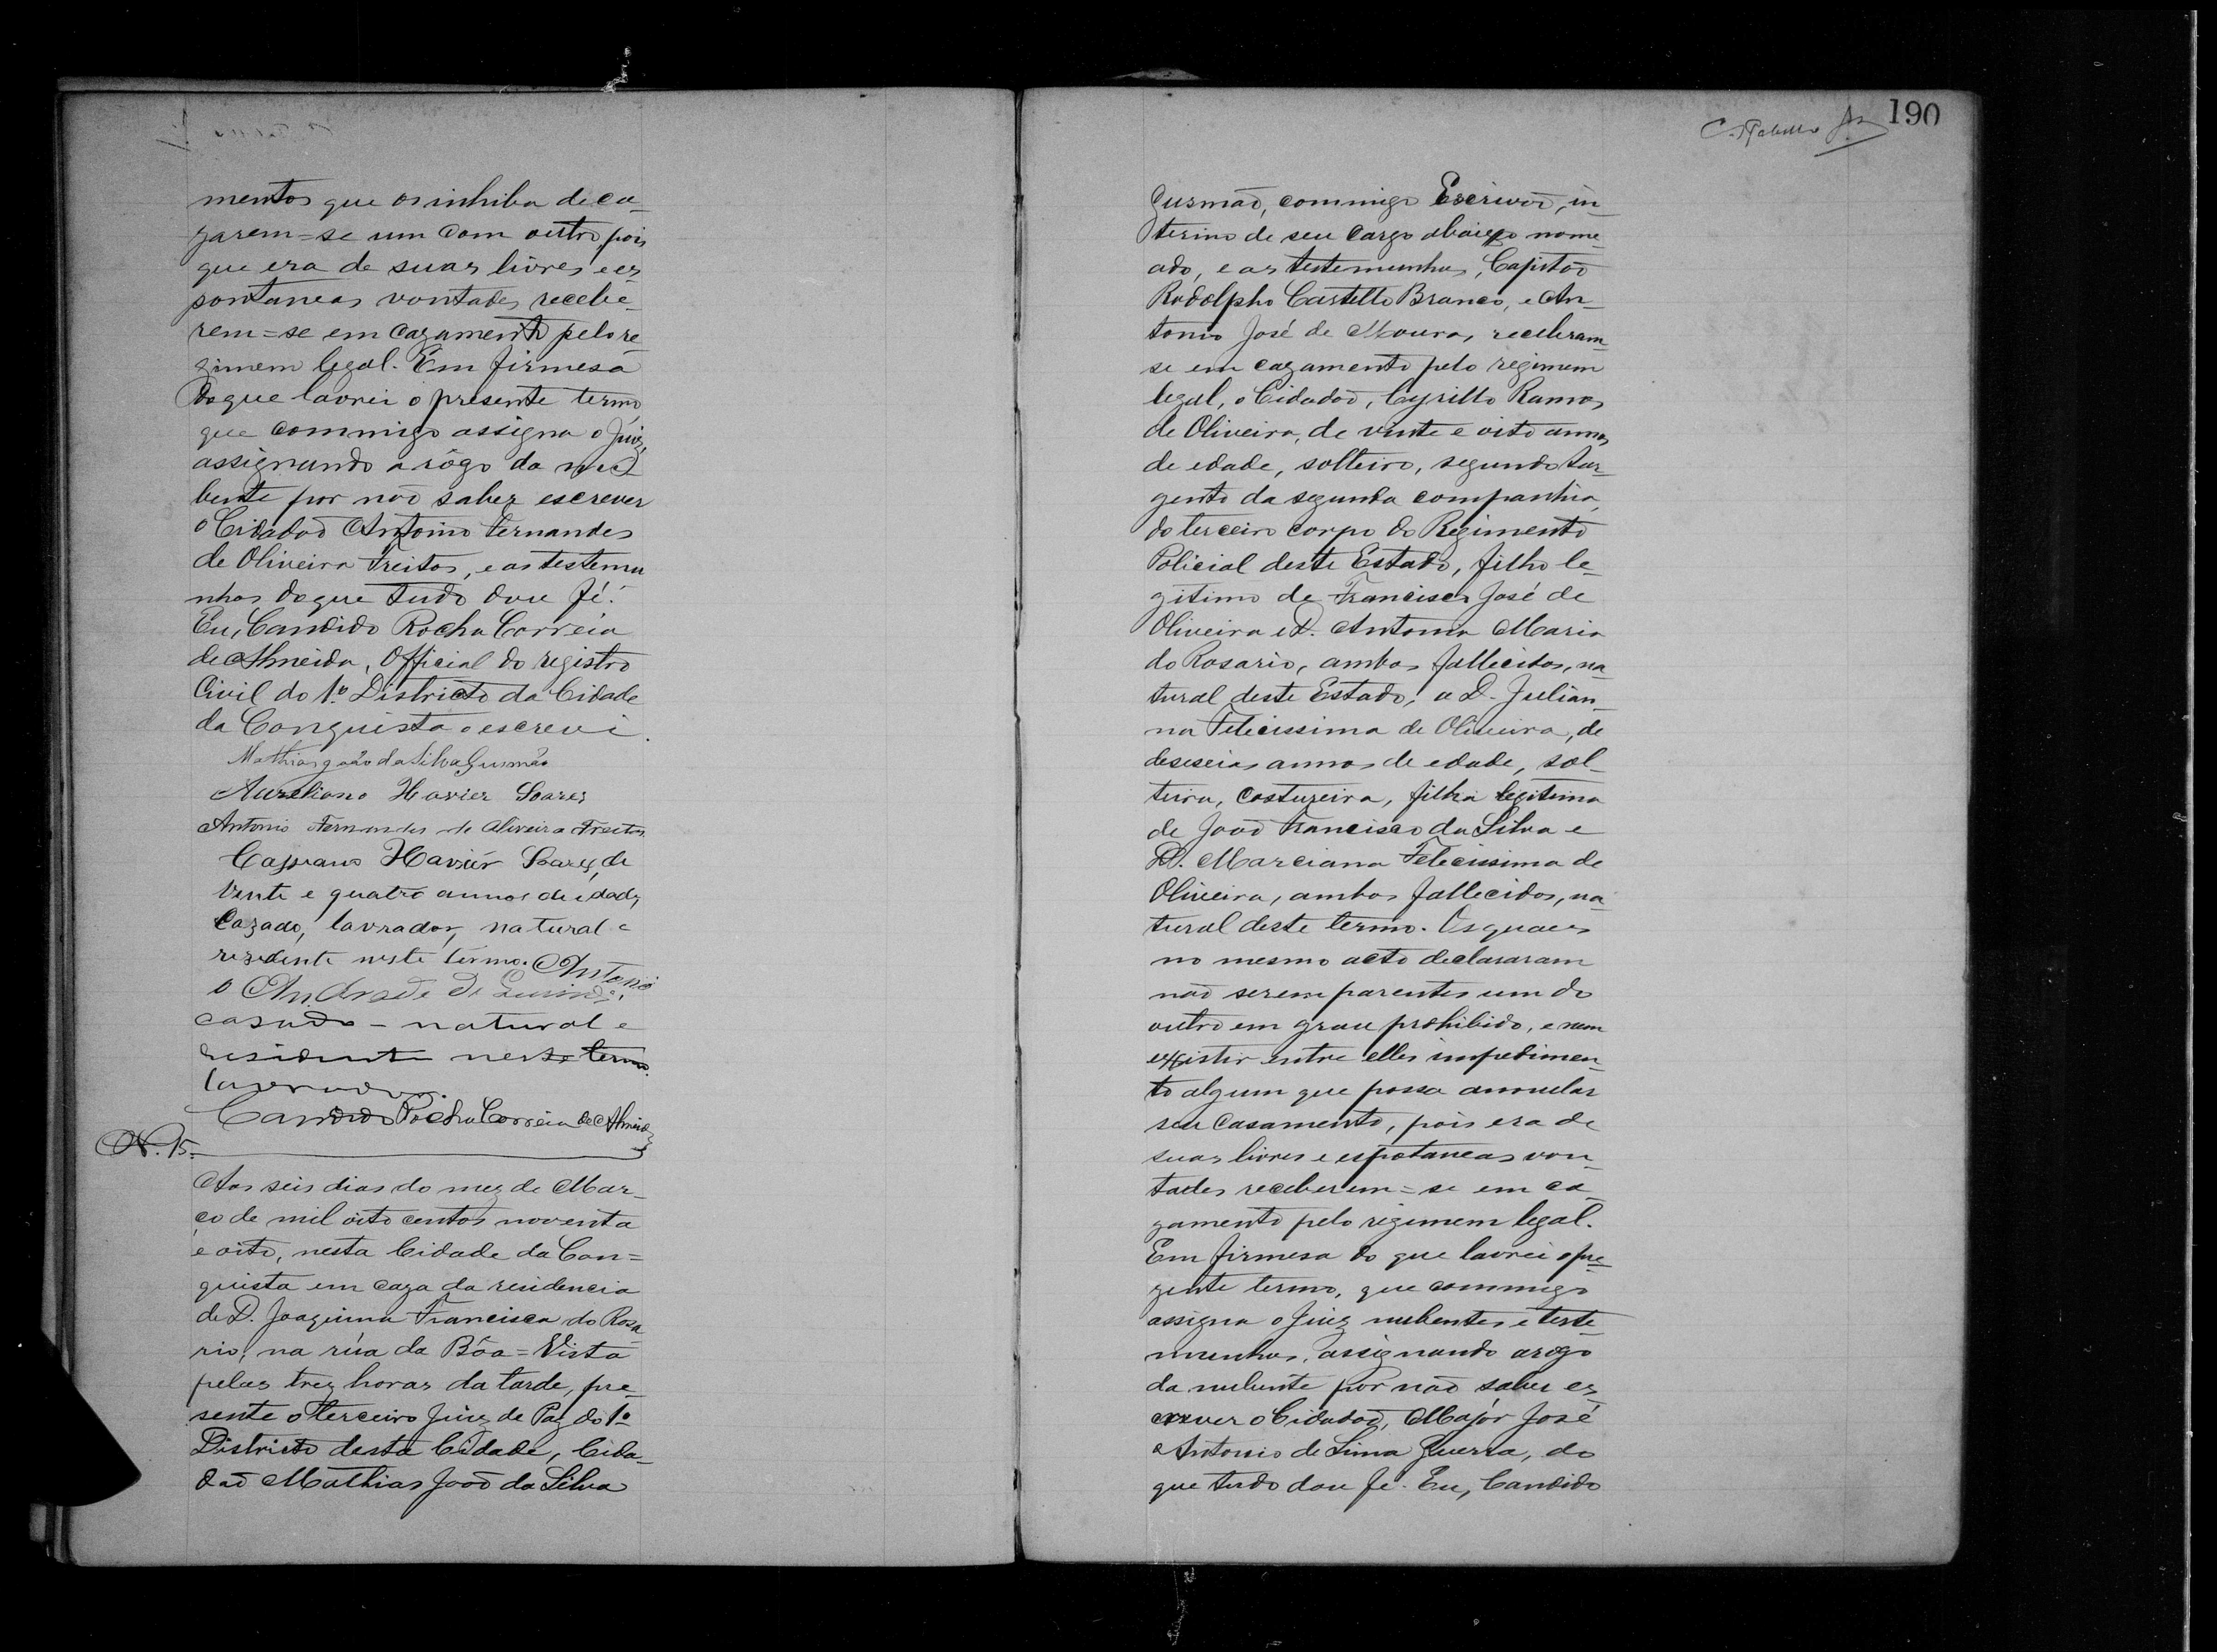 mentos que os inhiba de ca-
zarem=se um com outro, pois
que era de suas livres e es
pontaneas vontades recebe-
rem=se em cazamento pelo re
gimem legal. Em firmesa
do que lavrei o presente termo,
que commigo assigna o Juiz,
assignando a rôgo da nu
bente por não saber escrever
o Cidadão Antonio Fernandes
de Oliveira Freitas, e as testemu
nhas do que tudo dou fé.
Eu, Candido Rocha Correia
de Almeida, Official do registro
Civil do 1º Districto da Cidade
da Conquista o escrevi.
Mathias João da Silva Gusmão
Aureliano Havier Soares
Antonio Fernandes de Oliveira Freitas
Havier Soares, de
Vinte e quatro annos de idade,
Cazado, lavrador, natural e
rezidente neste termo. Antonio
Andrade de
casado - natural e
residente neste termo.
lavrador
Candido Rocha Correia de Almeida
N. 15.
Aos seis dias do mez de Mar-
ço de mil oito centos noventa
e oito, nesta Cidade da Con=
quista em caza da residencia
de D. Joaquina Francisca do Rosa
rio, na rúa da Bôa=Vista
pelas trez horas da tarde, pre-
sente o terceiro Juiz de Paz do 1º
Districto desta Cidade, Cida-
dão Mathias João da Silva
190
Gusmão, commigo Escrivão, in-
terino de seu cargo abaixo nome-
ado, e as testemunhas, Capitão
Rodolpho Castello Branco, e An-
tonio José de Moura, receberam-
se em cazamento pelo regimem
legal, o Cidadão, Cyrillo Ramos
de Oliveira, de vinte e oito annos
de edade, solteiro, segundo sar-
gento da segunda companhia,
do terceiro corpo do Regimento
Policial deste Estado, filho le-
gitimo de Francisco José de
Oliveira e D. Antonia Maria
do Rosario, ambos fallecidos, na-
tural deste Estado, e D. Julian-
na Felicissima de Oliveira, de
deseseis annos de edade, sol-
teira, costureira, filha legitima
de João Francisco da Silva e
D. Marciana Felicissima de
Oliveira, ambos fallecidos, na-
tural deste termo. Os quaes
no mesmo acto declararam
não serem parentes um do
outro em grau prohibido, e nem
existir entre elles impedimen-
to algum que possa annular
seu casamento, pois era de
suas livres e espotaneas von-
tades receberem=se em ca-
zamento pelo regimem legal.
Em firmesa do que lavrei o pre-
zente termo, que commigo
assigna o Juiz nubentes e teste-
munhas, assignando arogo
da nubente por não saber es-
crever o Cidadão, Major José
Antonio de Lima Guerra, do
que tudo dou fe. Eu, Candido